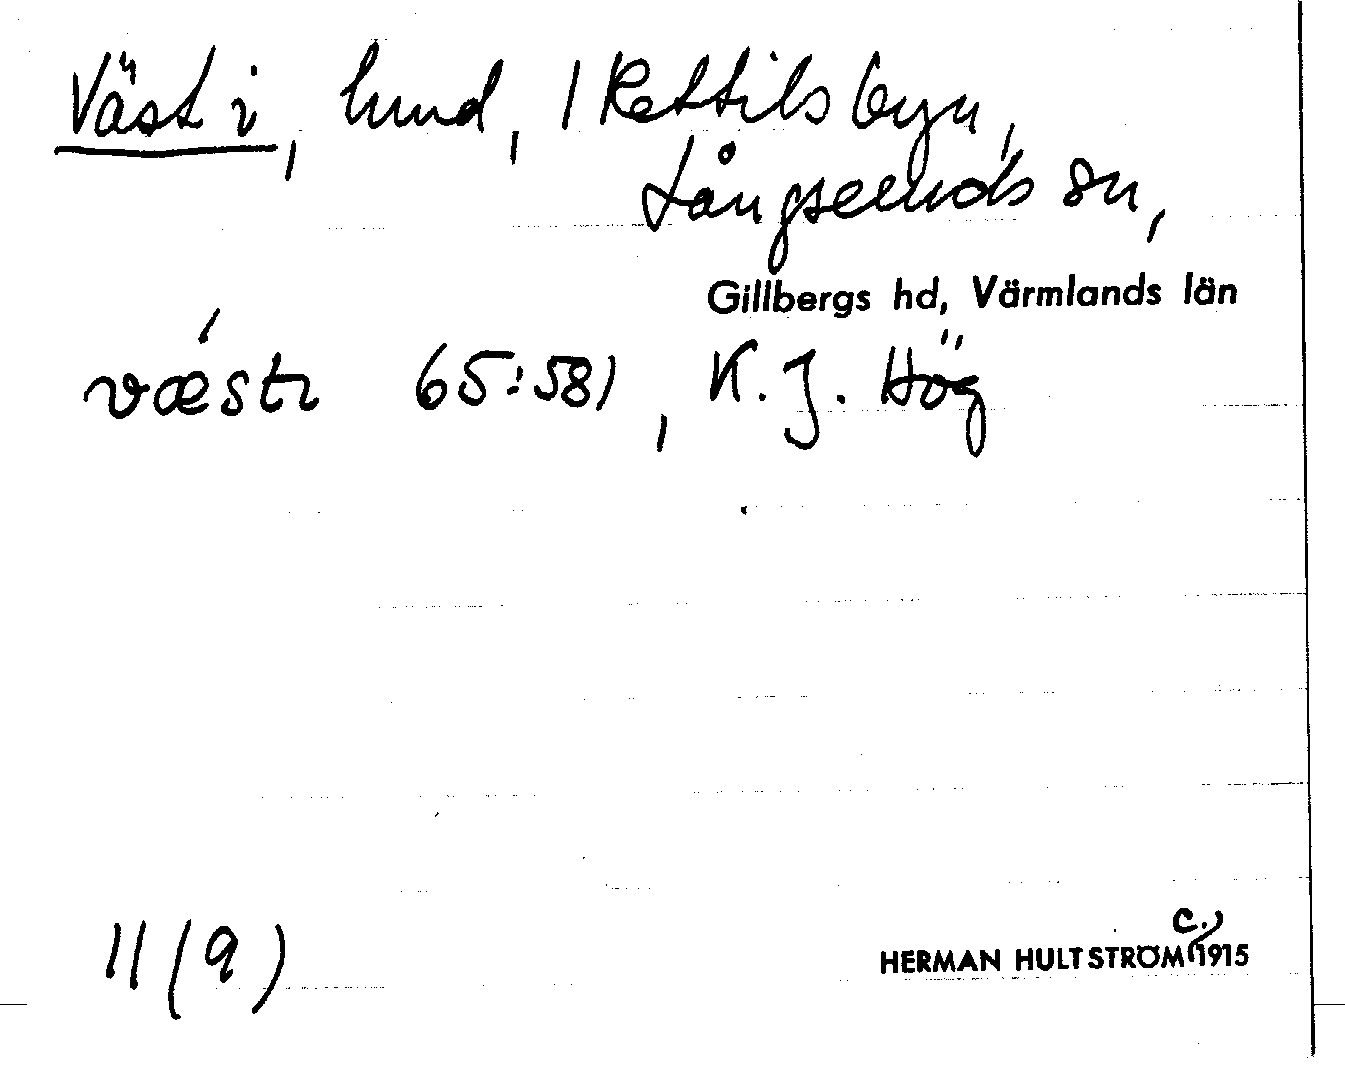 Väst i, lund, 1 Kettilsbyn,
Långseruds sn,
Gillbergs hd, Värmlands län
væ´stɩ 65:581, K. J. Hög
11 (9)
HERMAN HULTSTRÖM c. 1915